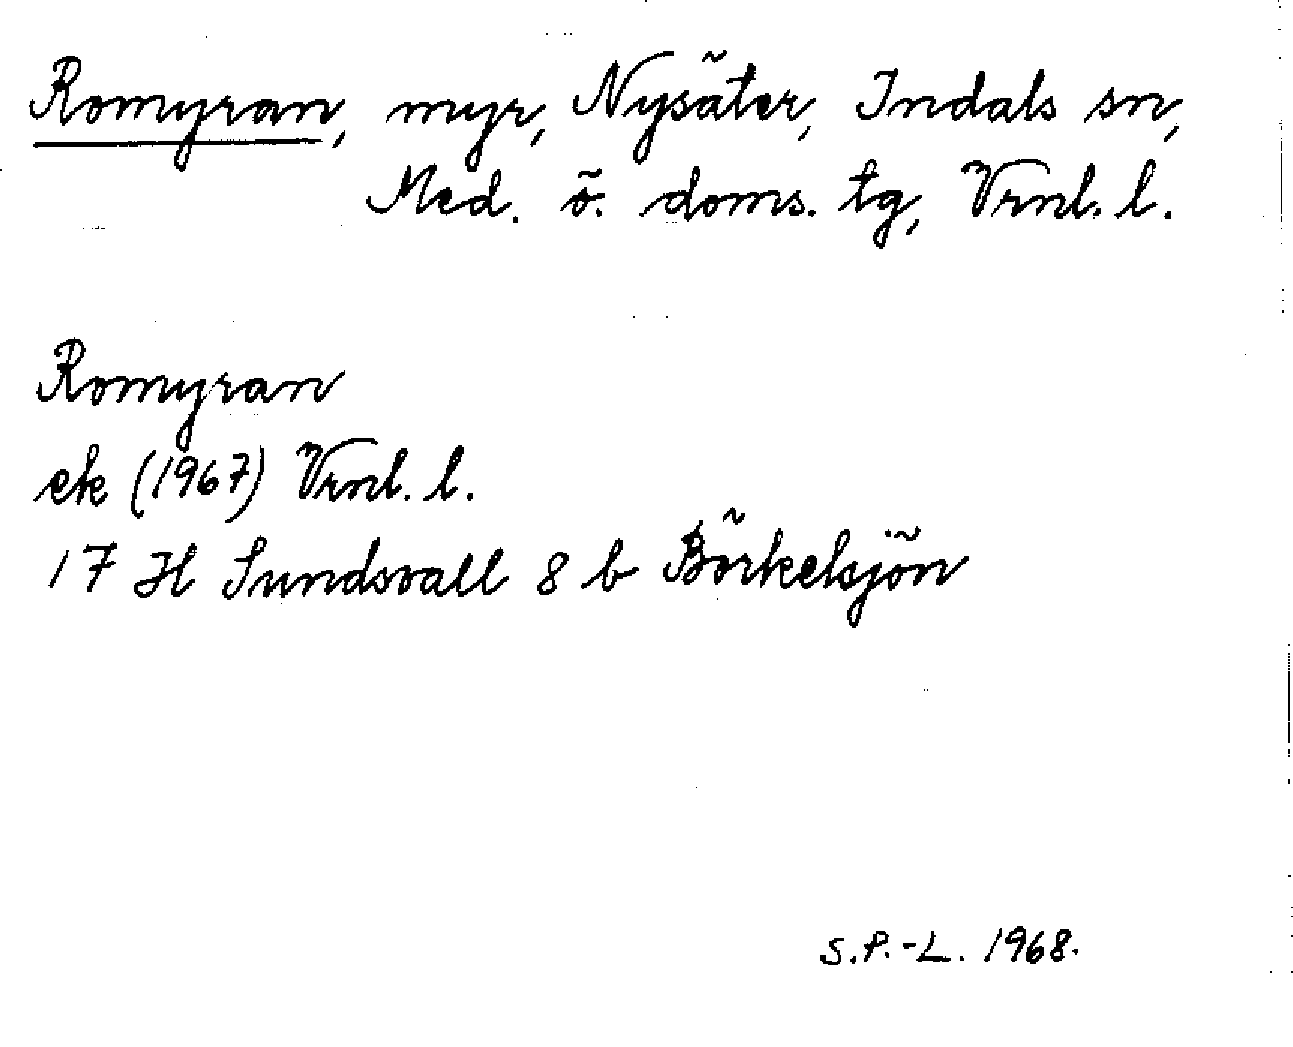 Romyran, myr, Nysäter, Indals sn,
Med. ö. doms. tg, Vrnl. l.
Romyran
ek (1967) Vrnl. l.
17 H Sundsvall 8 b Börkelsjön
S.P.-L. 1968.